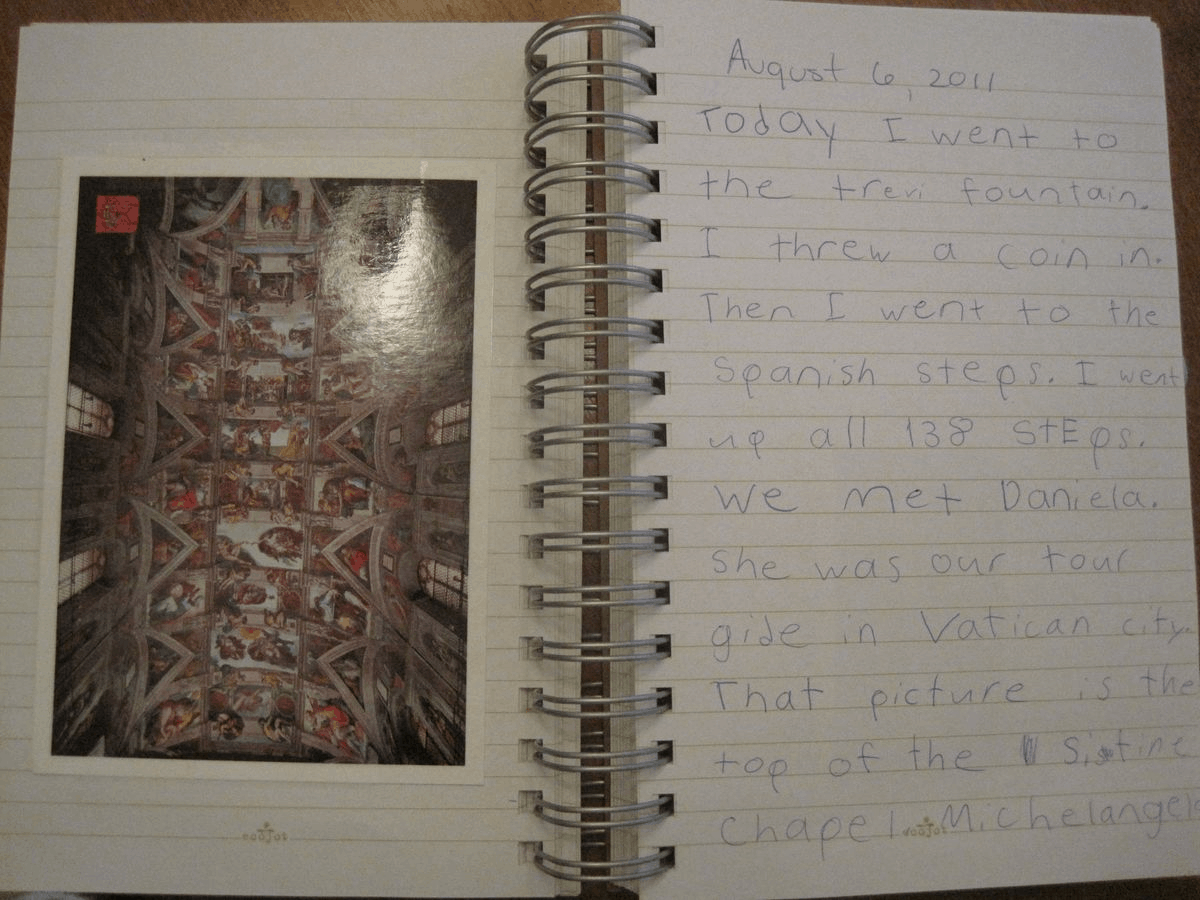 August 6, 2011
Today I went to
the trevi fountain.
I threw a coin in.
Then I went to the
Spanish steps. I went
up all 138 StEps.
We met Daniela.
She was our tour
gide in Vatican city.
That picture is the
top of the Sistine
Chapel. Michelangel
coojot
coojot